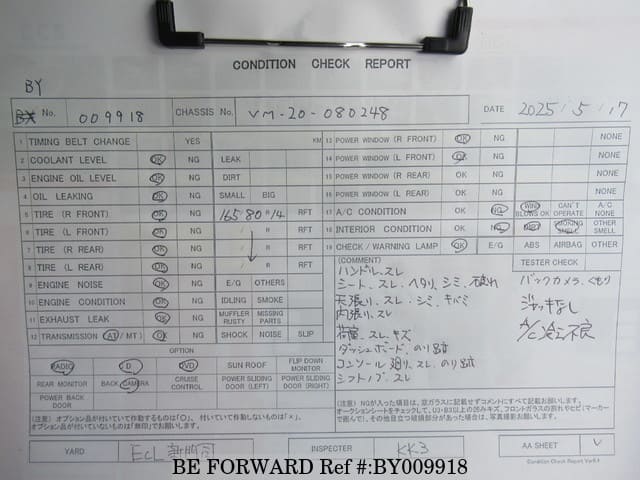 CONDITION CHECK REPORT
BY
BX No. 009918 CHASSIS No. VM-20-080248 DATE 2025/5/17
1 TIMING BELT CHANGE YES KM
2 COOLANT LEVEL OK NG LEAK
3 ENGINE OIL LEVEL OK NG DIRT
4 OIL LEAKING OK NG SMALL BIG
5 TIRE (R FRONT) OK NG 165/80R14 RFT
6 TIRE (L FRONT) OK NG / R RFT
7 TIRE (R REAR) OK NG / R RFT
8 TIRE (L REAR) OK NG / R RFT
9 ENGINE NOISE OK NG E/G OTHERS
10 ENGINE CONDITION OK NG IDLING SMOKE
11 EXHAUST LEAK OK NG MUFFLER RUSTY MISSING PARTS
12 TRANSMISSION (AT/MT) OK NG SHOCK NOISE SLIP
OPTION
RADIO CD DVD SUN ROOF FLIP DOWN MONITOR
REAR MONITOR BACK CAMERA CRUISE CONTROL POWER SLIDING DOOR (LEFT) POWER SLIDING DOOR (RIGHT)
POWER BACK DOOR
(注意) オプション品が付いていて作動するものは「○」、付いていて作動しないものは「×」、
オプション品が付いていないものは「無印」でお願いします。
13 POWER WINDOW (R FRONT) OK NG NONE
14 POWER WINDOW (L FRONT) OK NG NONE
15 POWER WINDOW (R REAR) OK NG NONE
16 POWER WINDOW (L REAR) OK NG NONE
17 A/C CONDITION OK NG WIND BLOWS OK CAN'T OPERATE A/C NONE
18 INTERIOR CONDITION OK NG DIRT SMOKING SMELL OTHER SMELL
19 CHECK / WARNING LAMP OK E/G ABS AIRBAG OTHER
(COMMENT)
TESTER CHECK
ハンドル.スレ
シート、スレ、ヘタリ、シミ、破れ
天張り、スレ・シミ・キバミ
内張り.スレ
荷室、スレ、キズ
ダッシュボード、のり跡
コンソール廻り、スレ、のり跡
シフトノブ、スレ
バックカメラ、くもり
ジャッキなし
A/C冷え不良
(注意) NGが入った項目は、空ガラスに併せてコメントにすべて記載お願いします。
YARD ECL INSPECTER KK3 AA SHEET
Condition Check Report Ver6.4
BE FORWARD Ref #:BY009918